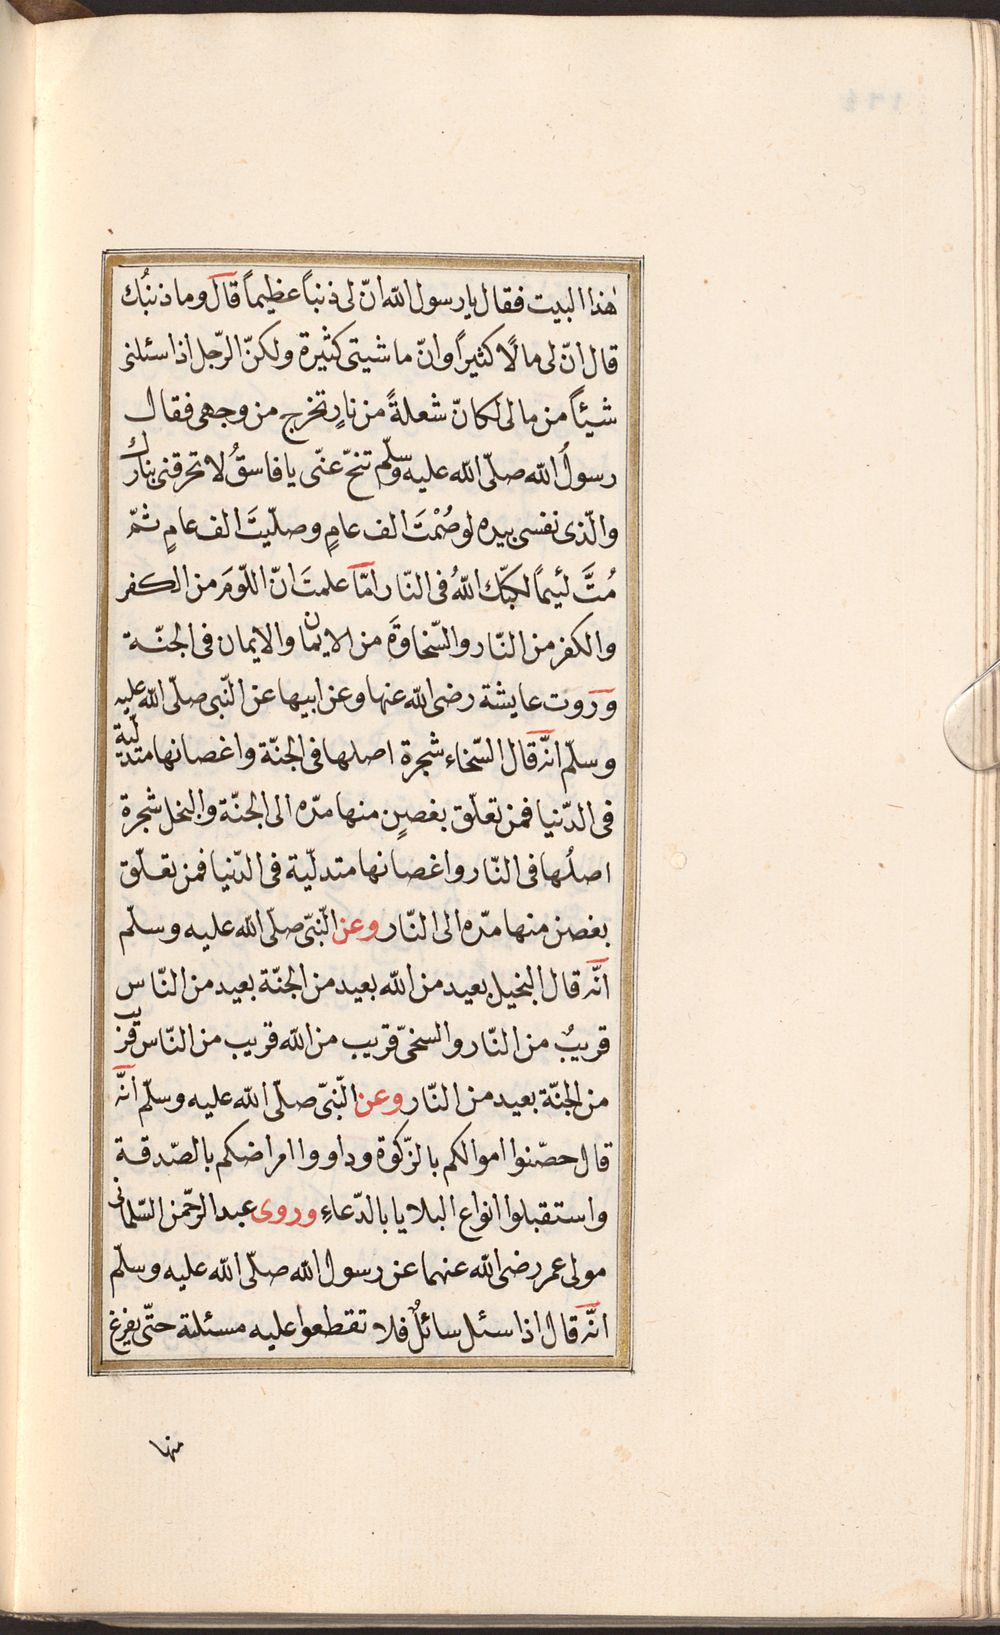 هٰذا البيت فقال يا رسول الله انّ لى ذنباً عظيماً قال وما ذنبُك
قال انّ لى مالًا كثيراً وانّ ماشيتى كثيرة ولكنّ الرّجل اذا سئلنى
شيئاً من مالى لكانّ شعلةً من نارٍ تخرج من وجهى فقال
رسولُ الله صلّى الله عليه وسلّم تنحّ عنّى يا فاسقُ لا تحرقنى بنارك
والّذى نفسى بيده لو صُمْتَ الف عامٍ وصلّيتَ الف عامٍ ثمّ
مُتَّ لئيماً لكبّك اللهُ فى النّار امّا علمتَ انّ اللّومَ من الكفر
والكفر من النّار والسّخاوةَ من الايمان والايمان فى الجنّة
وروت عايشة رضى الله عنها وعن ابيها عن النّبى صلّى الله عليه
وسلّم انّه قال السّخاء شجرة اصلها فى الجنّة واغصانها متدلّية
فى الدّنيا فمن تعلّق بغصنٍ منها مدّه الى الجنّة والبخل شجرة
اصلُها فى النّار واغصانها متدلّية فى الدّنيا فمن تعلّق
بغصن منها مدّه الى النّار وعن النّبىّ صلّى الله عليه وسلّم
انّه قال البخيل بعيد من الله بعيد من الجنّة بعيد من النّاس
قريبٌ من النّار والسخىّ قريب من الله قريب من النّاس قريب
من الجنّة بعيد من النّار وعن النّبىّ صلّى الله عليه وسلّم انّه
قال حصّنوا اموالكم بالزّكوة وداووا امراضكم بالصّدقة
واستقبلوا انواع البلايا بالدّعاءِ وروى عبد الرّحمن السّلمانى
مولى عمر رضى الله عنهما عن رسول الله صلّى الله عليه وسلّم
انّه قال اذا سئل سائلٌ فلا تقطعوا عليه مسئلة حتّى يفرغ
منها